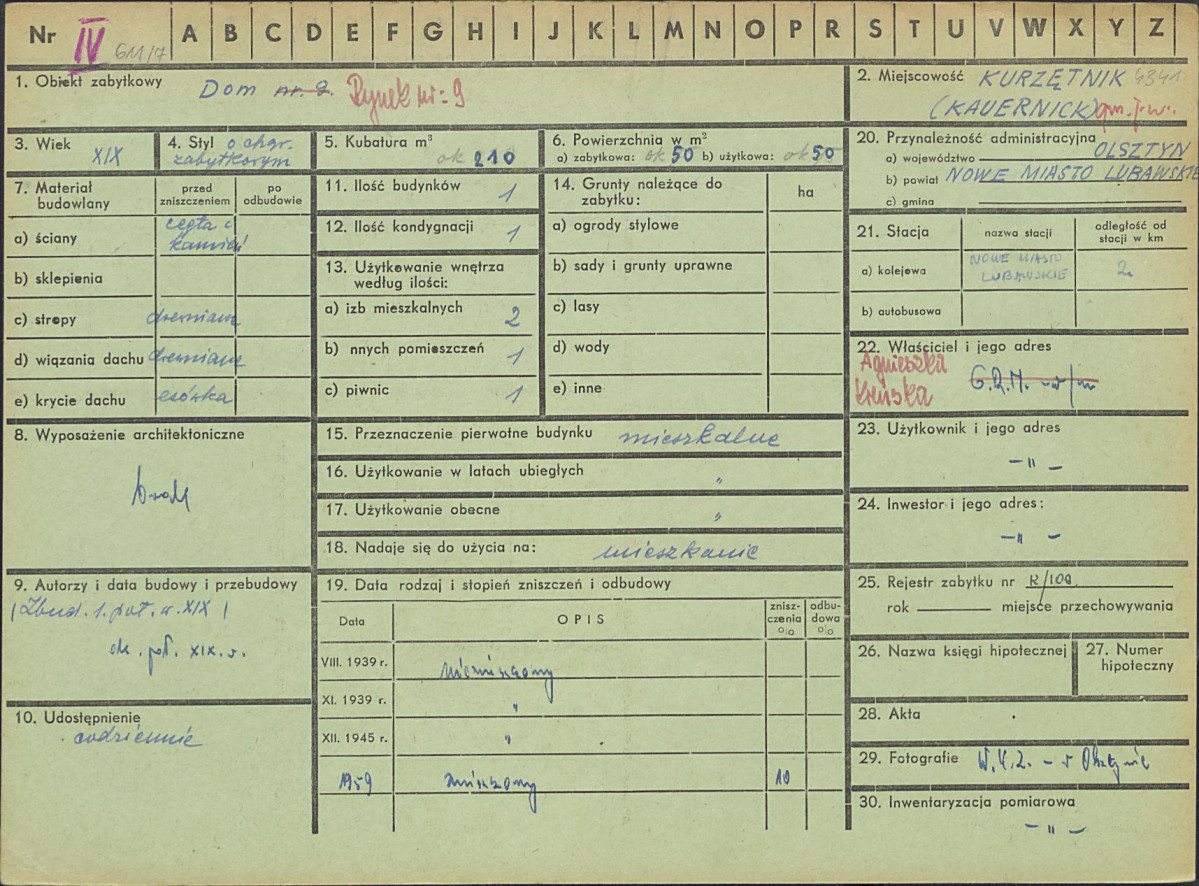 Nr IV 611/7 A B C D E F G H I J K L M N O P R S T U V W X Y Z
1. Obiekt zabytkowy Dom nr. 9 Rynek nr: 9
2. Miejscowość KURZĘTNIK 4341
(KAUERNICK)
3. Wiek XIX
4. Styl o char. zabytkowym
5. Kubatura m³ ok 210
6. Powierzchnia w m²
a) zabytkowa: ok 50 b) użytkowa: ok 50
20. Przynależność administracyjna
a) województwo OLSZTYN
b) powiat NOWE MIASTO LUBAWSKIE
c) gmina
7. Materiał budowlany
przed zniszczeniem
po odbudowie
a) ściany cegła i kamień
b) sklepienia
c) stropy drewniane
d) wiązania dachu drewniane
e) krycie dachu esówka
11. Ilość budynków 1
12. Ilość kondygnacji 1
13. Użytkowanie wnętrza według ilości:
a) izb mieszkalnych 2
b) nnych pomieszczeń 1
c) piwnic 1
14. Grunty należące do zabytku:
ha
a) ogrody stylowe
b) sady i grunty uprawne
c) lasy
d) wody
e) inne
21. Stacja
nazwa stacji
odległość od stacji w km
a) kolejowa NOWE MIASTO LUBAWSKIE 2
b) autobusowa
22. Właściciel i jego adres
Agnieszka
G.R.N.
8. Wyposażenie architektoniczne
brak
15. Przeznaczenie pierwotne budynku mieszkalne
16. Użytkowanie w latach ubiegłych "
17. Użytkowanie obecne "
18. Nadaje się do użycia na: mieszkanie
23. Użytkownik i jego adres
- " -
24. Inwestor i jego adres:
- " -
9. Autorzy i data budowy i przebudowy
(Zbud. 1. poł. w. XIX)
ok. poł. XIX w.
10. Udostępnienie
codziennie
19. Data rodzaj i stopień zniszczeń i odbudowy
Data
OPIS
zniszczenia %
odbudowa %
VIII. 1939 r. niezniszczony
XI. 1939 r. "
XII. 1945 r. "
1959 zniszczony 10
25. Rejestr zabytku nr K/100
rok miejsce przechowywania
26. Nazwa księgi hipotecznej
27. Numer hipoteczny
28. Akta
29. Fotografie W.K.Z. - w Olsztynie
30. Inwentaryzacja pomiarowa
- " -